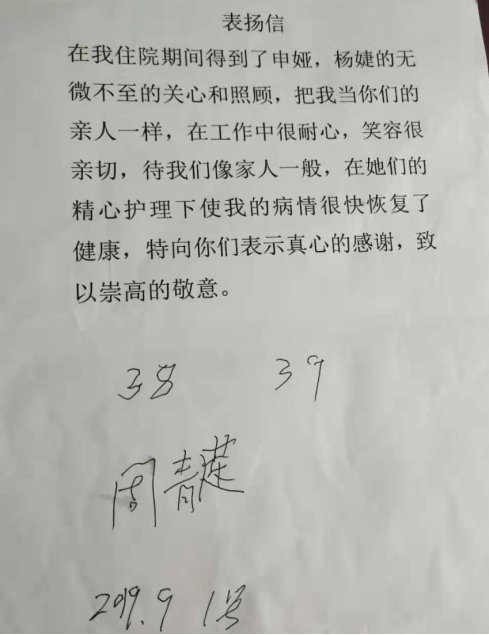 表扬信
在我住院期间得到了申娅，杨婕的无
微不至的关心和照顾，把我当你们的
亲人一样，在工作中很耐心，笑容很
亲切，待我们像家人一般，在她们的
精心护理下使我的病情很快恢复了
健康，特向你们表示真心的感谢，致
以崇高的敬意。
38 39
周青莲
2019.9 1号